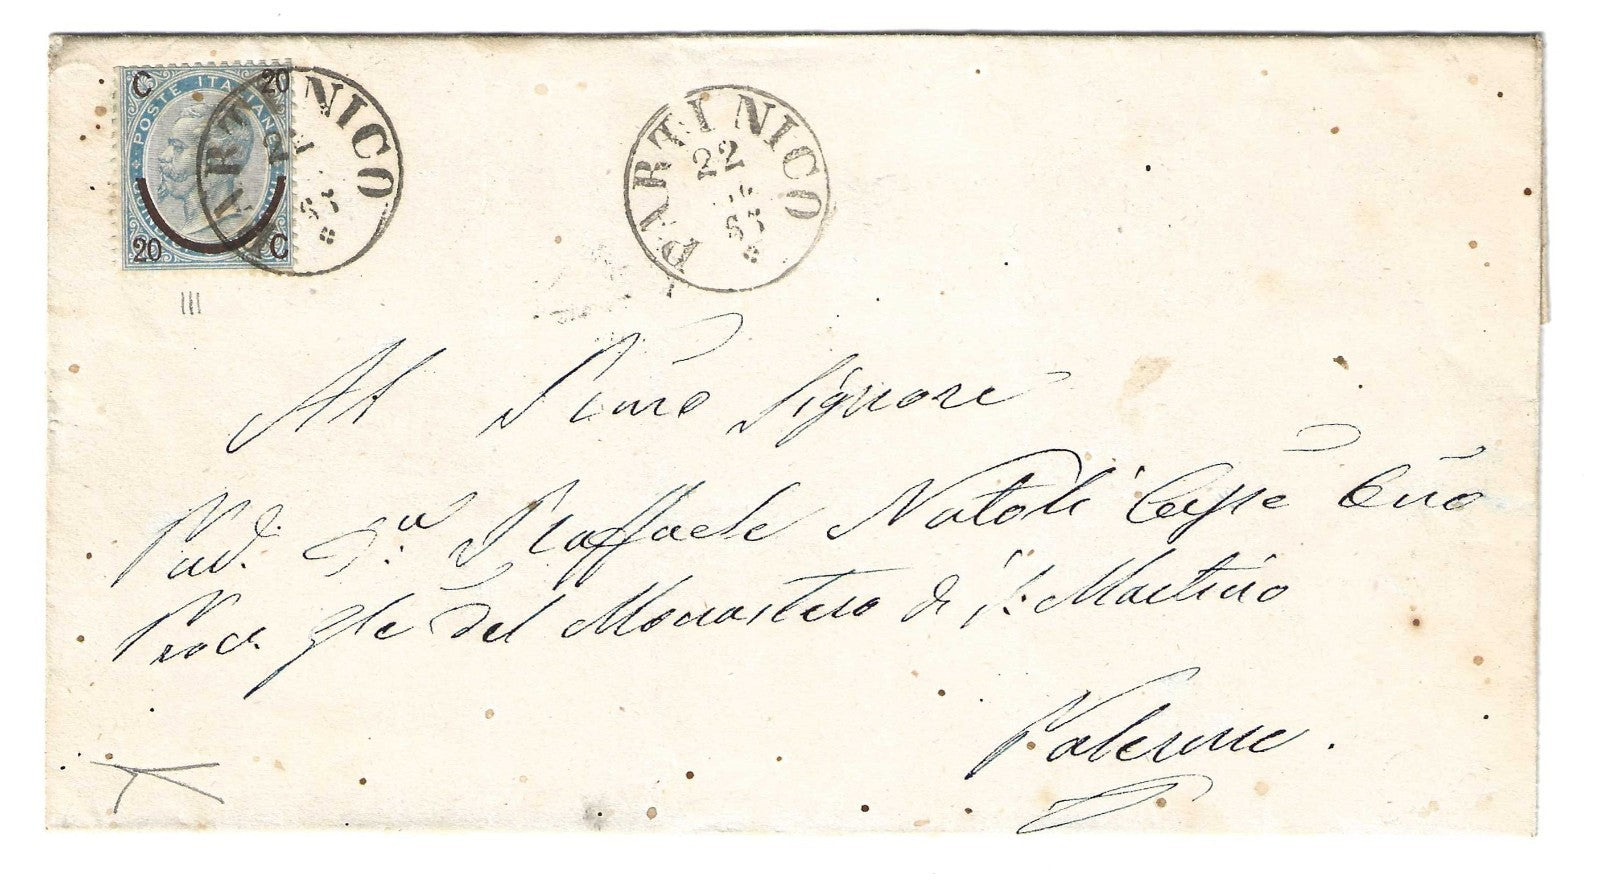 C 20
POSTE ITALIANE
20 C
PARTINICO
PARTINICO
22
III
Al Rmo Signore
Pad. D.n Raffaele Natoli Casse
Proc. Gle del Monastero di S. Martino
Palermo.